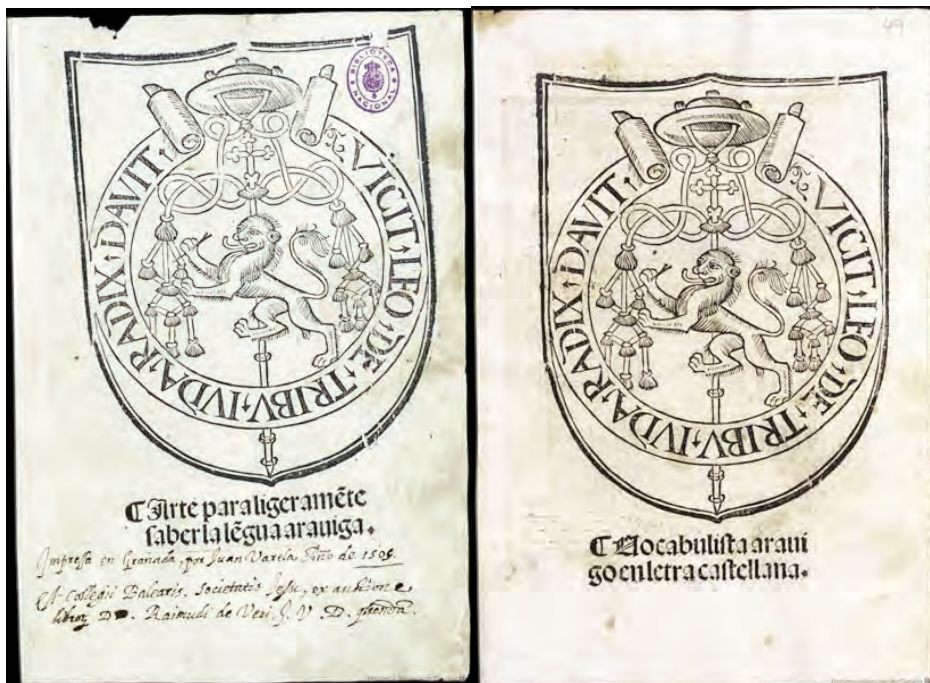 BIBLIOTECA NACIONAL
VICIT · LEO · DE · TRIBV · IVDA · RADIX · DAVIT ·
¶ Arte para ligeramẽte
saber la lẽgua arauiga.
Impressa en Granada, por Juan Varela. Año de 1505.
Collegii Balearis. Societatis Jesu, ex
D. Raimudi de Veri J. V. D.
49
VICIT · LEO · DE · TRIBV · IVDA · RADIX · DAVIT ·
¶ Vocabulista araui
go en letra castellana.